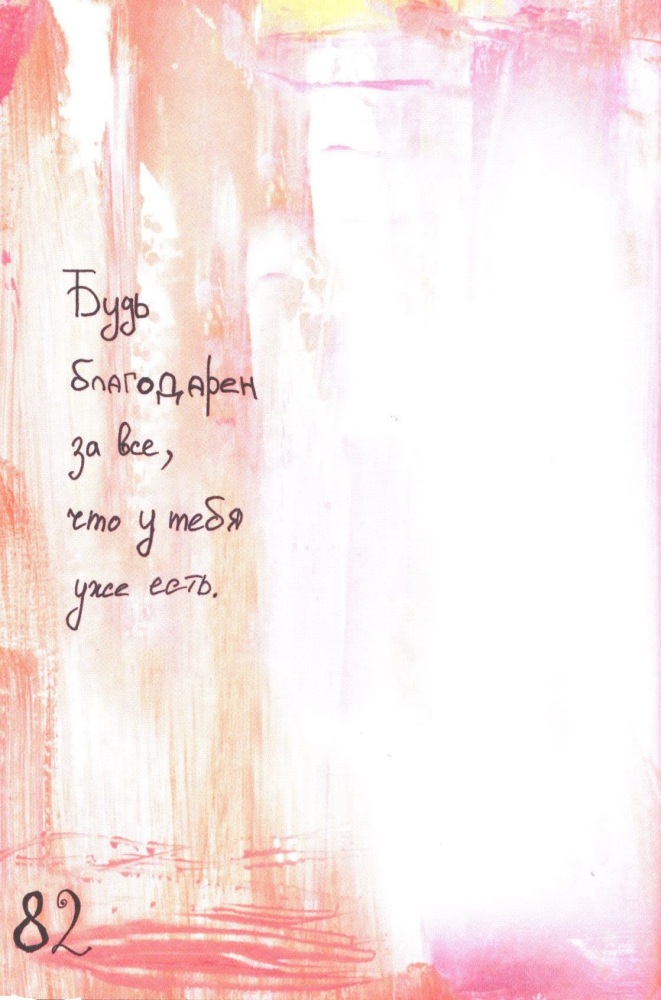 Будь
благодарен
за все,
что у тебя
уже есть.
82